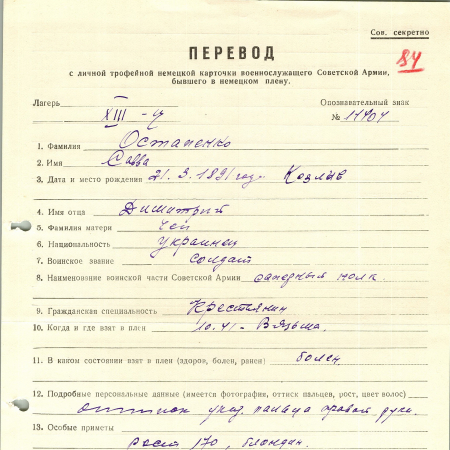 Сов. секретно
ПЕРЕВОД
84
с личной трофейной немецкой карточки военнослужащего Советской Армии,
бывшего в немецком плену.
Лагерь XIII Опознавательный знак
№ 11404
1. Фамилия Остапенко
2. Имя Савва
3. Дата и место рождения 21.3.1891 год.
4. Имя отца Димитрий
5. Фамилия матери
6. Национальность украинец
7. Воинское звание солдат
8. Наименование воинской части Советской Армии саперный полк.
9. Гражданская специальность Крестьянин
10. Когда и где взят в плен 10.41 - Вязьма.
11. В каком состоянии взят в плен (здоров, болен, ранен) болен.
12. Подробные персональные данные (имеется фотография, оттиск пальцев, рост, цвет волос)
оттиск указ. пальца правой руки.
13. Особые приметы
рост 170, блондин.